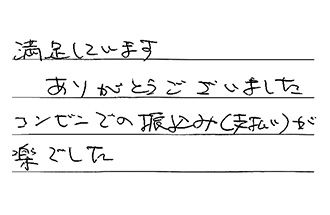 満足しています
ありがとうございました
コンビニでの振込み(支払い)が
楽でした